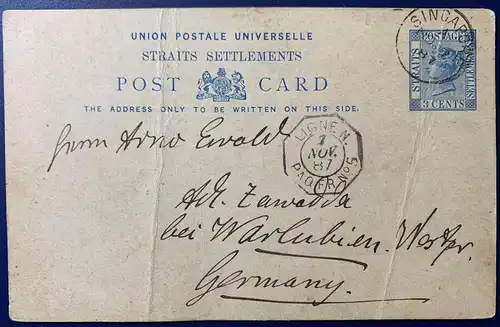 UNION POSTALE UNIVERSELLE
STRAITS SETTLEMENTS
POST CARD
THE ADDRESS ONLY TO BE WRITTEN ON THIS SIDE.
STRAITS
POSTAGE
SETTLEMENTS
3 CENTS
SINGAPORE
87
Herrn Arno Ewald
LIGNE N.
1
NOV.
87
PAQ. FR. No 5
Adl. Zawadda
bei Warlubien. Westpr.
Germany.